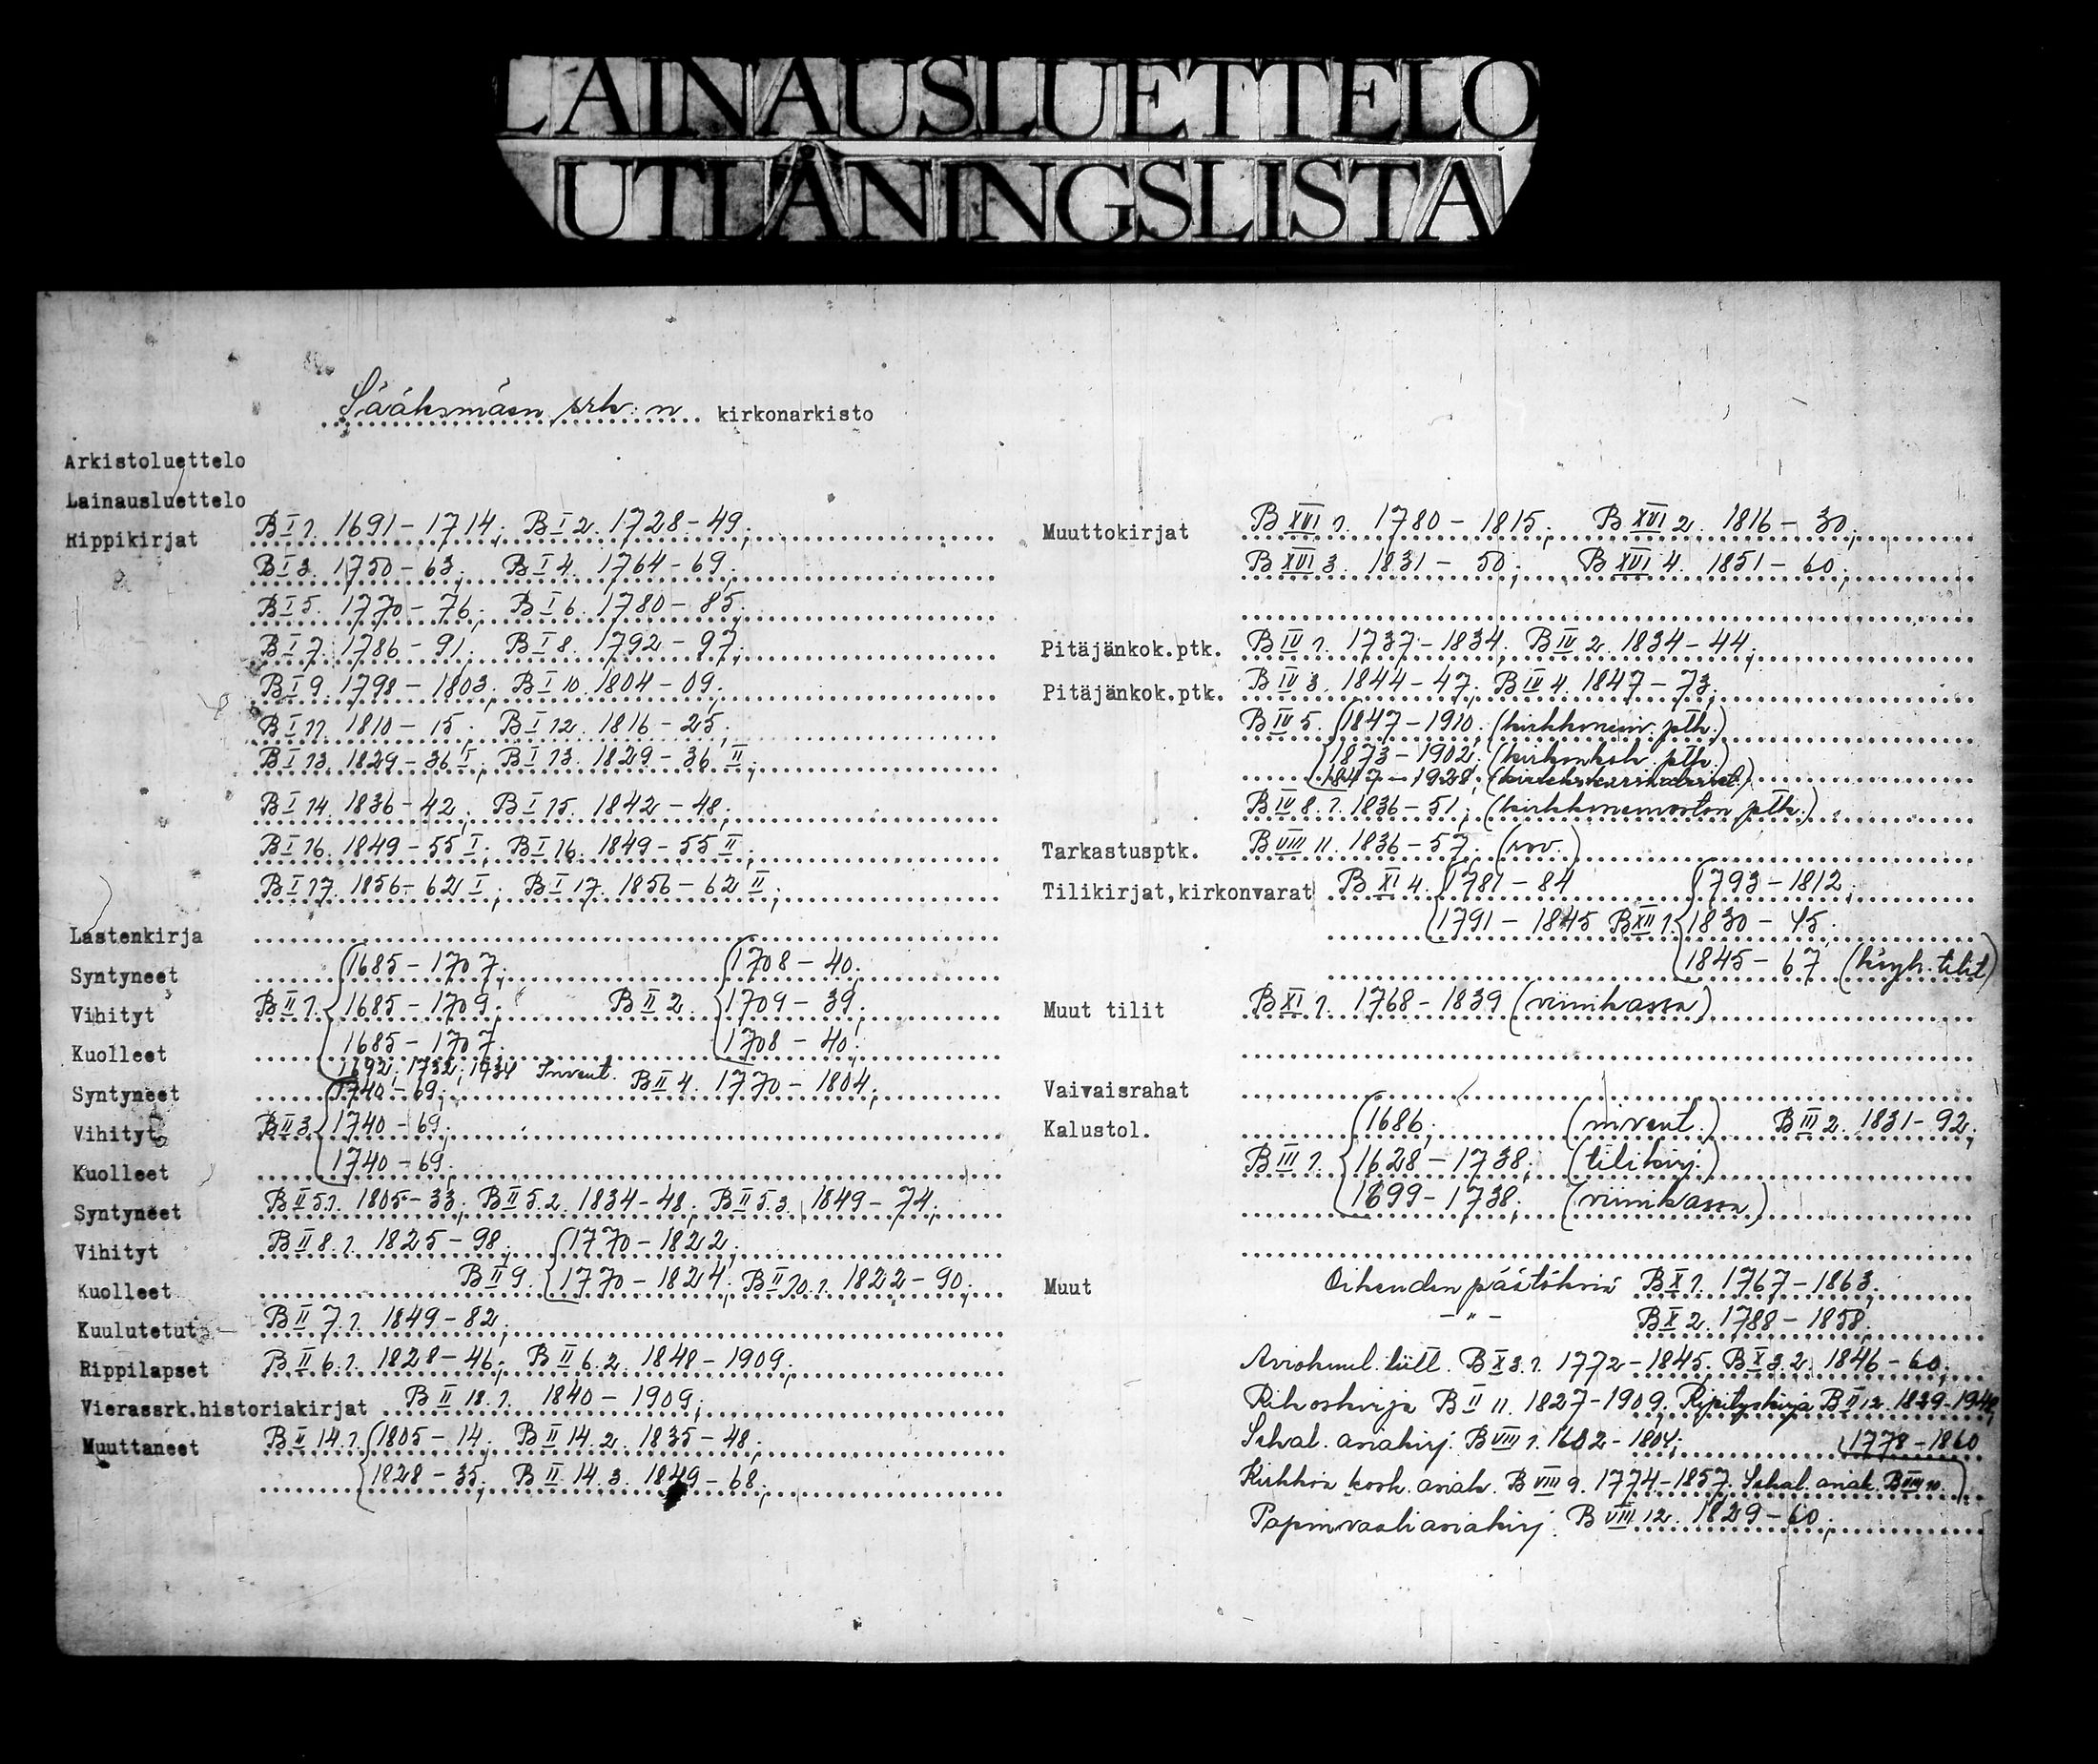 LAINAUSLUETTELO
UTLÅNINGSLISTA
Sääksmäen srk:n kirkonarkisto
Arkistoluettelo
Lainausluettelo
Rippikirjat B I 1. 1691-1714; B I 2. 1728-49;
B I 3. 1750-63; B I 4. 1764-69;
B I 5. 1770-76; B I 6. 1780-85;
B I 7. 1786-91; B I 8. 1792-97;
B I 9. 1798-1803; B I 10. 1804-09;
B I 11. 1810-15; B I 12. 1816-25;
B I 13. 1829-36 I; B I 13. 1829-36 II;
B I 14. 1836-42; B I 15. 1842-48;
B I 16. 1849-55 I; B I 16. 1849-55 II;
B I 17. 1856-62 I; B I 17. 1856-62 II;
Lastenkirja
Syntyneet 1685-1707; 1708-40;
Vihityt B II 1. 1685-1709; B II 2. 1709-39;
Kuolleet 1685-1707; 1708-40;
1692; 1732; 1734 Invent.
Syntyneet 1740-69; B II 4. 1770-1804;
Vihityt B II 3 1740-69;
Kuolleet 1740-69;
Syntyneet B II 5.1. 1805-33; B II 5.2. 1834-48; B II 5.3. 1849-74;
Vihityt B II 8.1. 1825-98; 1770-1822;
Kuolleet B II 9. 1770-1824; B II 10.1. 1822-90;
Kuulutetut B II 7.1. 1849-82;
Rippilapset B II 6.1. 1828-46; B II 6.2. 1848-1909;
Vierassrk.historiakirjat B II 18.1. 1840-1909;
Muuttaneet B II 14.1. 1805-14; B II 14.2. 1835-48;
1828-35; B II 14.3. 1849-68;
Muuttokirjat B XVI 1. 1780-1815; B XVI 2. 1816-30;
B XVI 3. 1831-50; B XVI 4. 1851-60;
Pitäjänkok.ptk. B IV 1. 1737-1834; B IV 2. 1834-44;
Pitäjänkok.ptk. B IV 3. 1844-47; B IV 4. 1847-73;
B IV 5. 1847-1910; (kirkkoneuv. ptk.)
1873-1902; (kirkonkok. ptk.)
1847-1928;
B IV 8.1. 1836-51; (kirkkoneuvoston ptk.)
Tarkastusptk. B VIII 11. 1836-57; (rov.)
Tilikirjat,kirkonvarat B XI 4. 1781-84 1793-1812;
1791-1845 B XII 1. 1830-45;
1845-67 (köyh. tilit)
Muut tilit B XI 1. 1768-1839 (viinikassa)
Vaivaisrahat
Kalustol. 1686; (invent.) B III 2. 1831-92;
B III 1. 1628-1738; (tilikirj.)
1699-1738; (viinikassa)
Muut Oikeuden päätöksiä B X 1. 1767-1863;
-"- B X 2. 1788-1858;
Aviokuul. luett. B X 3.1. 1772-1845; B X 3.2. 1846-60;
Rikoskirja B II 11. 1827-1909; Ripityskirja B II 12. 1829-1948;
Sekal. asiakirj. B VIII 1. 1602-1804; 1778-1860
Kirkkoa kosk. asiak. B VIII 9. 1774-1857. Sekal. asiak. B VIII 10.
Papinvaaliasiakirj. B VIII 12. 1829-60;